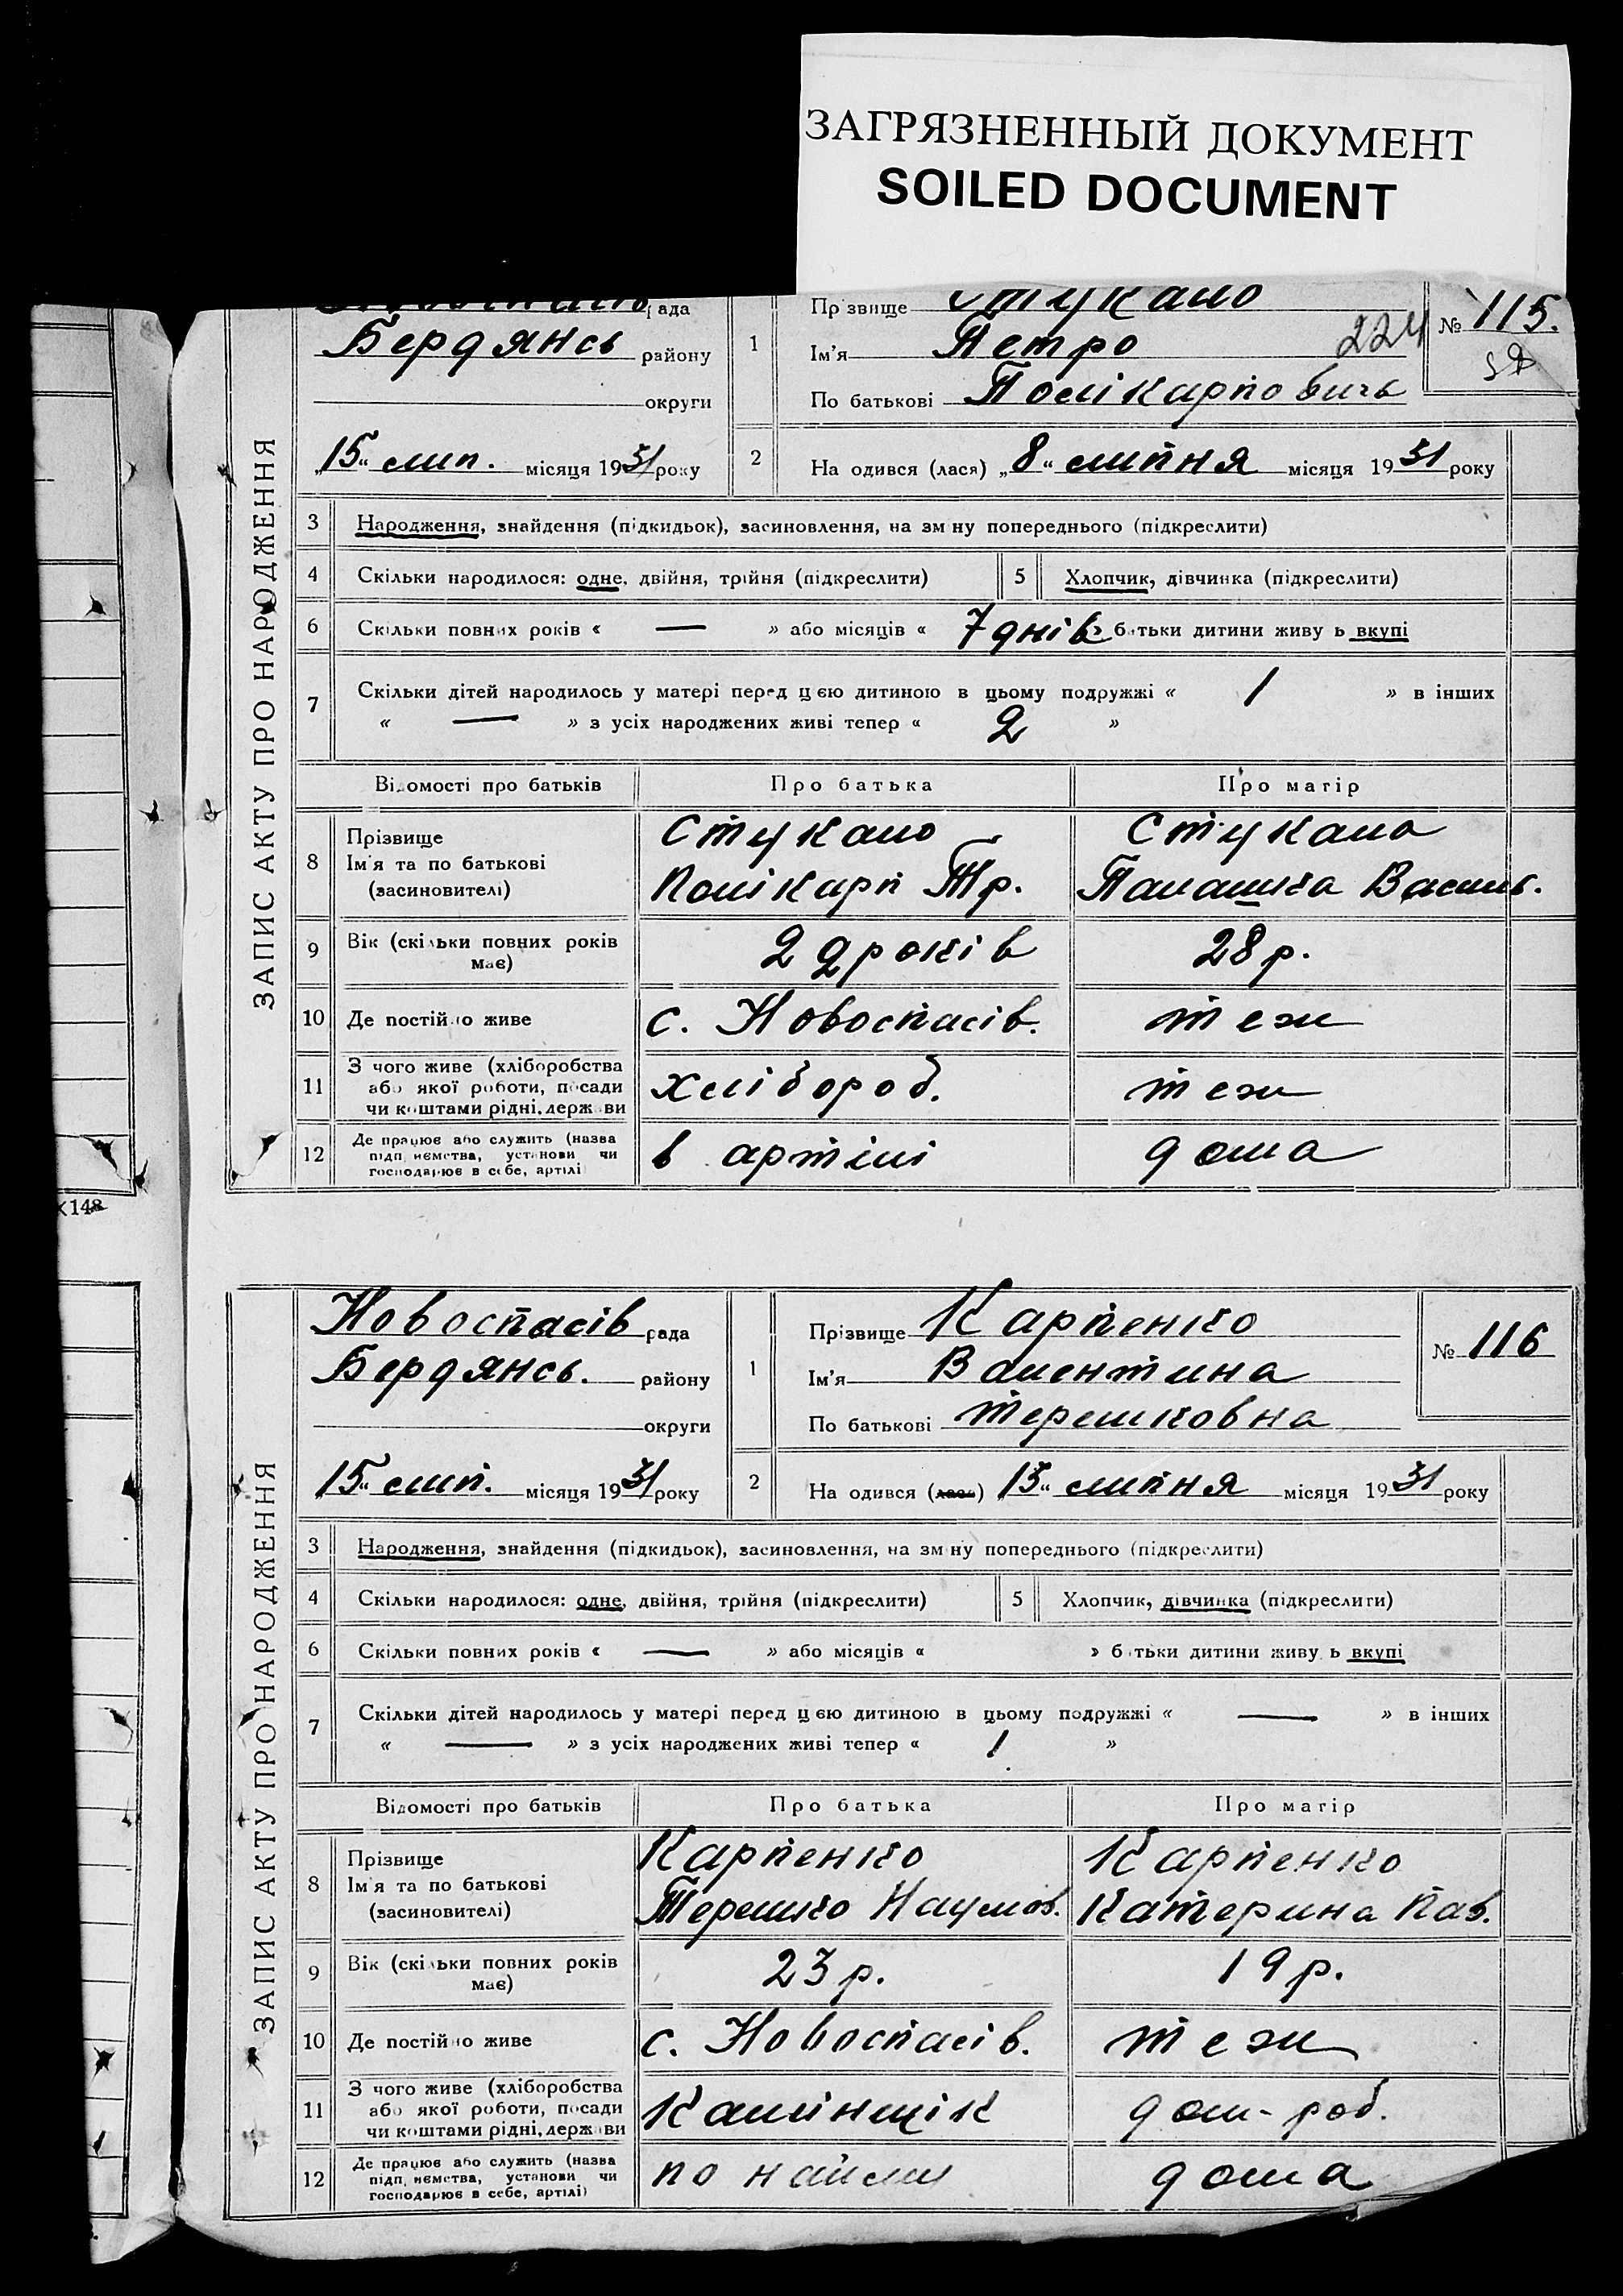 ЗАГРЯЗНЕННЫЙ ДОКУМЕНТ
SOILED DOCUMENT
ЗАПИС АКТУ ПРО НАРОДЖЕННЯ
рада
Бердянсь району
округи
„15“ лип. місяця 1931 року
1
Прізвище Стукало
Ім'я Петро 224
По батькові Полікарповичь
№ 115.
2 На одився (лася) „8“ липня місяця 1931 року
3 Народження, знайдення (підкидьок), засиновлення, на зм ну попереднього (підкреслити)
4 Скільки народилося: одне, двійня, трійня (підкреслити) 5 Хлопчик, дівчинка (підкреслити)
6 Скільки повних років « — » або місяців « 7 днів » батьки дитини живу ь вкупі
7 Скільки дітей народилось у матері перед цією дитиною в цьому подружжі « 1 » в інших
« — » з усіх народжених живі тепер « 2 »
Відомості про батьків Про батька Про матір
8 Прізвище Ім'я та по батькові (засиновителі)
Стукало Полікарп Тр.
Стукало Палашка Василь.
9 Вік (скільки повних років має) 29 років 28 р.
10 Де постійно живе с. Новоспасів. теж
11 З чого живе (хліборобства або якої роботи, посади чи коштами рідні, держави хлібороб. теж
12 Де працює або служить (назва підприємства, установи чи господарює в себе, артілі) в артілі дома
X 148
ЗАПИС АКТУ ПРО НАРОДЖЕННЯ
Новоспасів рада
Бердянсь. району
округи
„15“ лип. місяця 1931 року
1
Прізвище Карпенко
Ім'я Валентина
По батькові Терешковна
№ 116
2 На одився (лася) „13“ липня місяця 1931 року
3 Народження, знайдення (підкидьок), засиновлення, на зм ну попереднього (підкреслити)
4 Скільки народилося: одне, двійня, трійня (підкреслити) 5 Хлопчик, дівчинка (підкреслити)
6 Скільки повних років « — » або місяців « » батьки дитини живу ь вкупі
7 Скільки дітей народилось у матері перед цією дитиною в цьому подружжі « — » в інших
« — » з усіх народжених живі тепер « 1 »
Відомості про батьків Про батька Про матір
8 Прізвище Ім'я та по батькові (засиновителі)
Карпенко Терешко Наумов.
Карпенко Катерина Пав.
9 Вік (скільки повних років має) 23 р. 19 р.
10 Де постійно живе с. Новоспасів. теж
11 З чого живе (хліборобства або якої роботи, посади чи коштами рідні, держави Камінщік дом-роб.
12 Де працює або служить (назва підприємства, установи чи господарює в себе, артілі) по найми дома